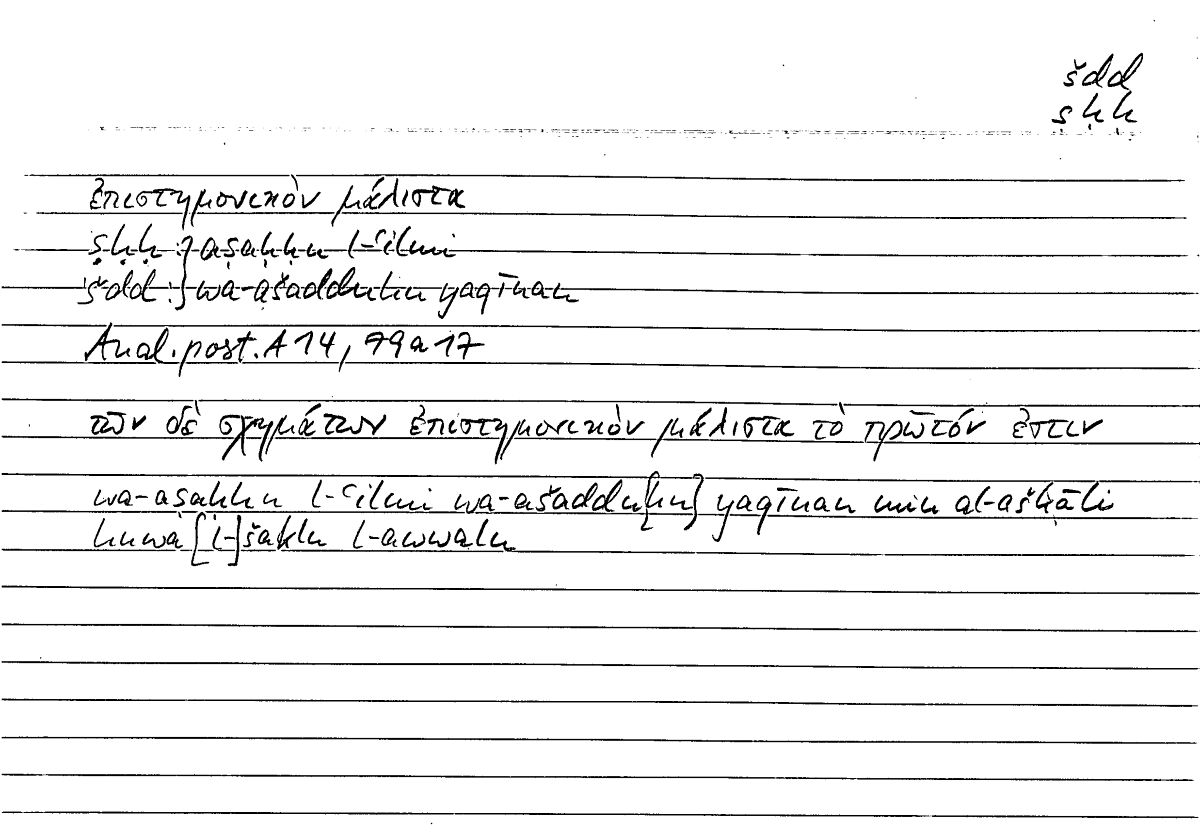 šdd
ṣḥḥ
ἐπιστημονικὸν μάλιστα
ṣḥḥ :} aṣaḥḥu l-ʿilmi
šdd :} wa-ašadduhu yaqīnan
Anal. post. A 14, 79a17
τῶν δὲ σχημάτων ἐπιστημονικὸν μάλιστα τὸ πρῶτόν ἐστιν
wa-aṣaḥḥu l-ʿilmi wa-ašaddu[hu] yaqīnan min al-aškāli
huwa [l-]šaklu l-awwalu